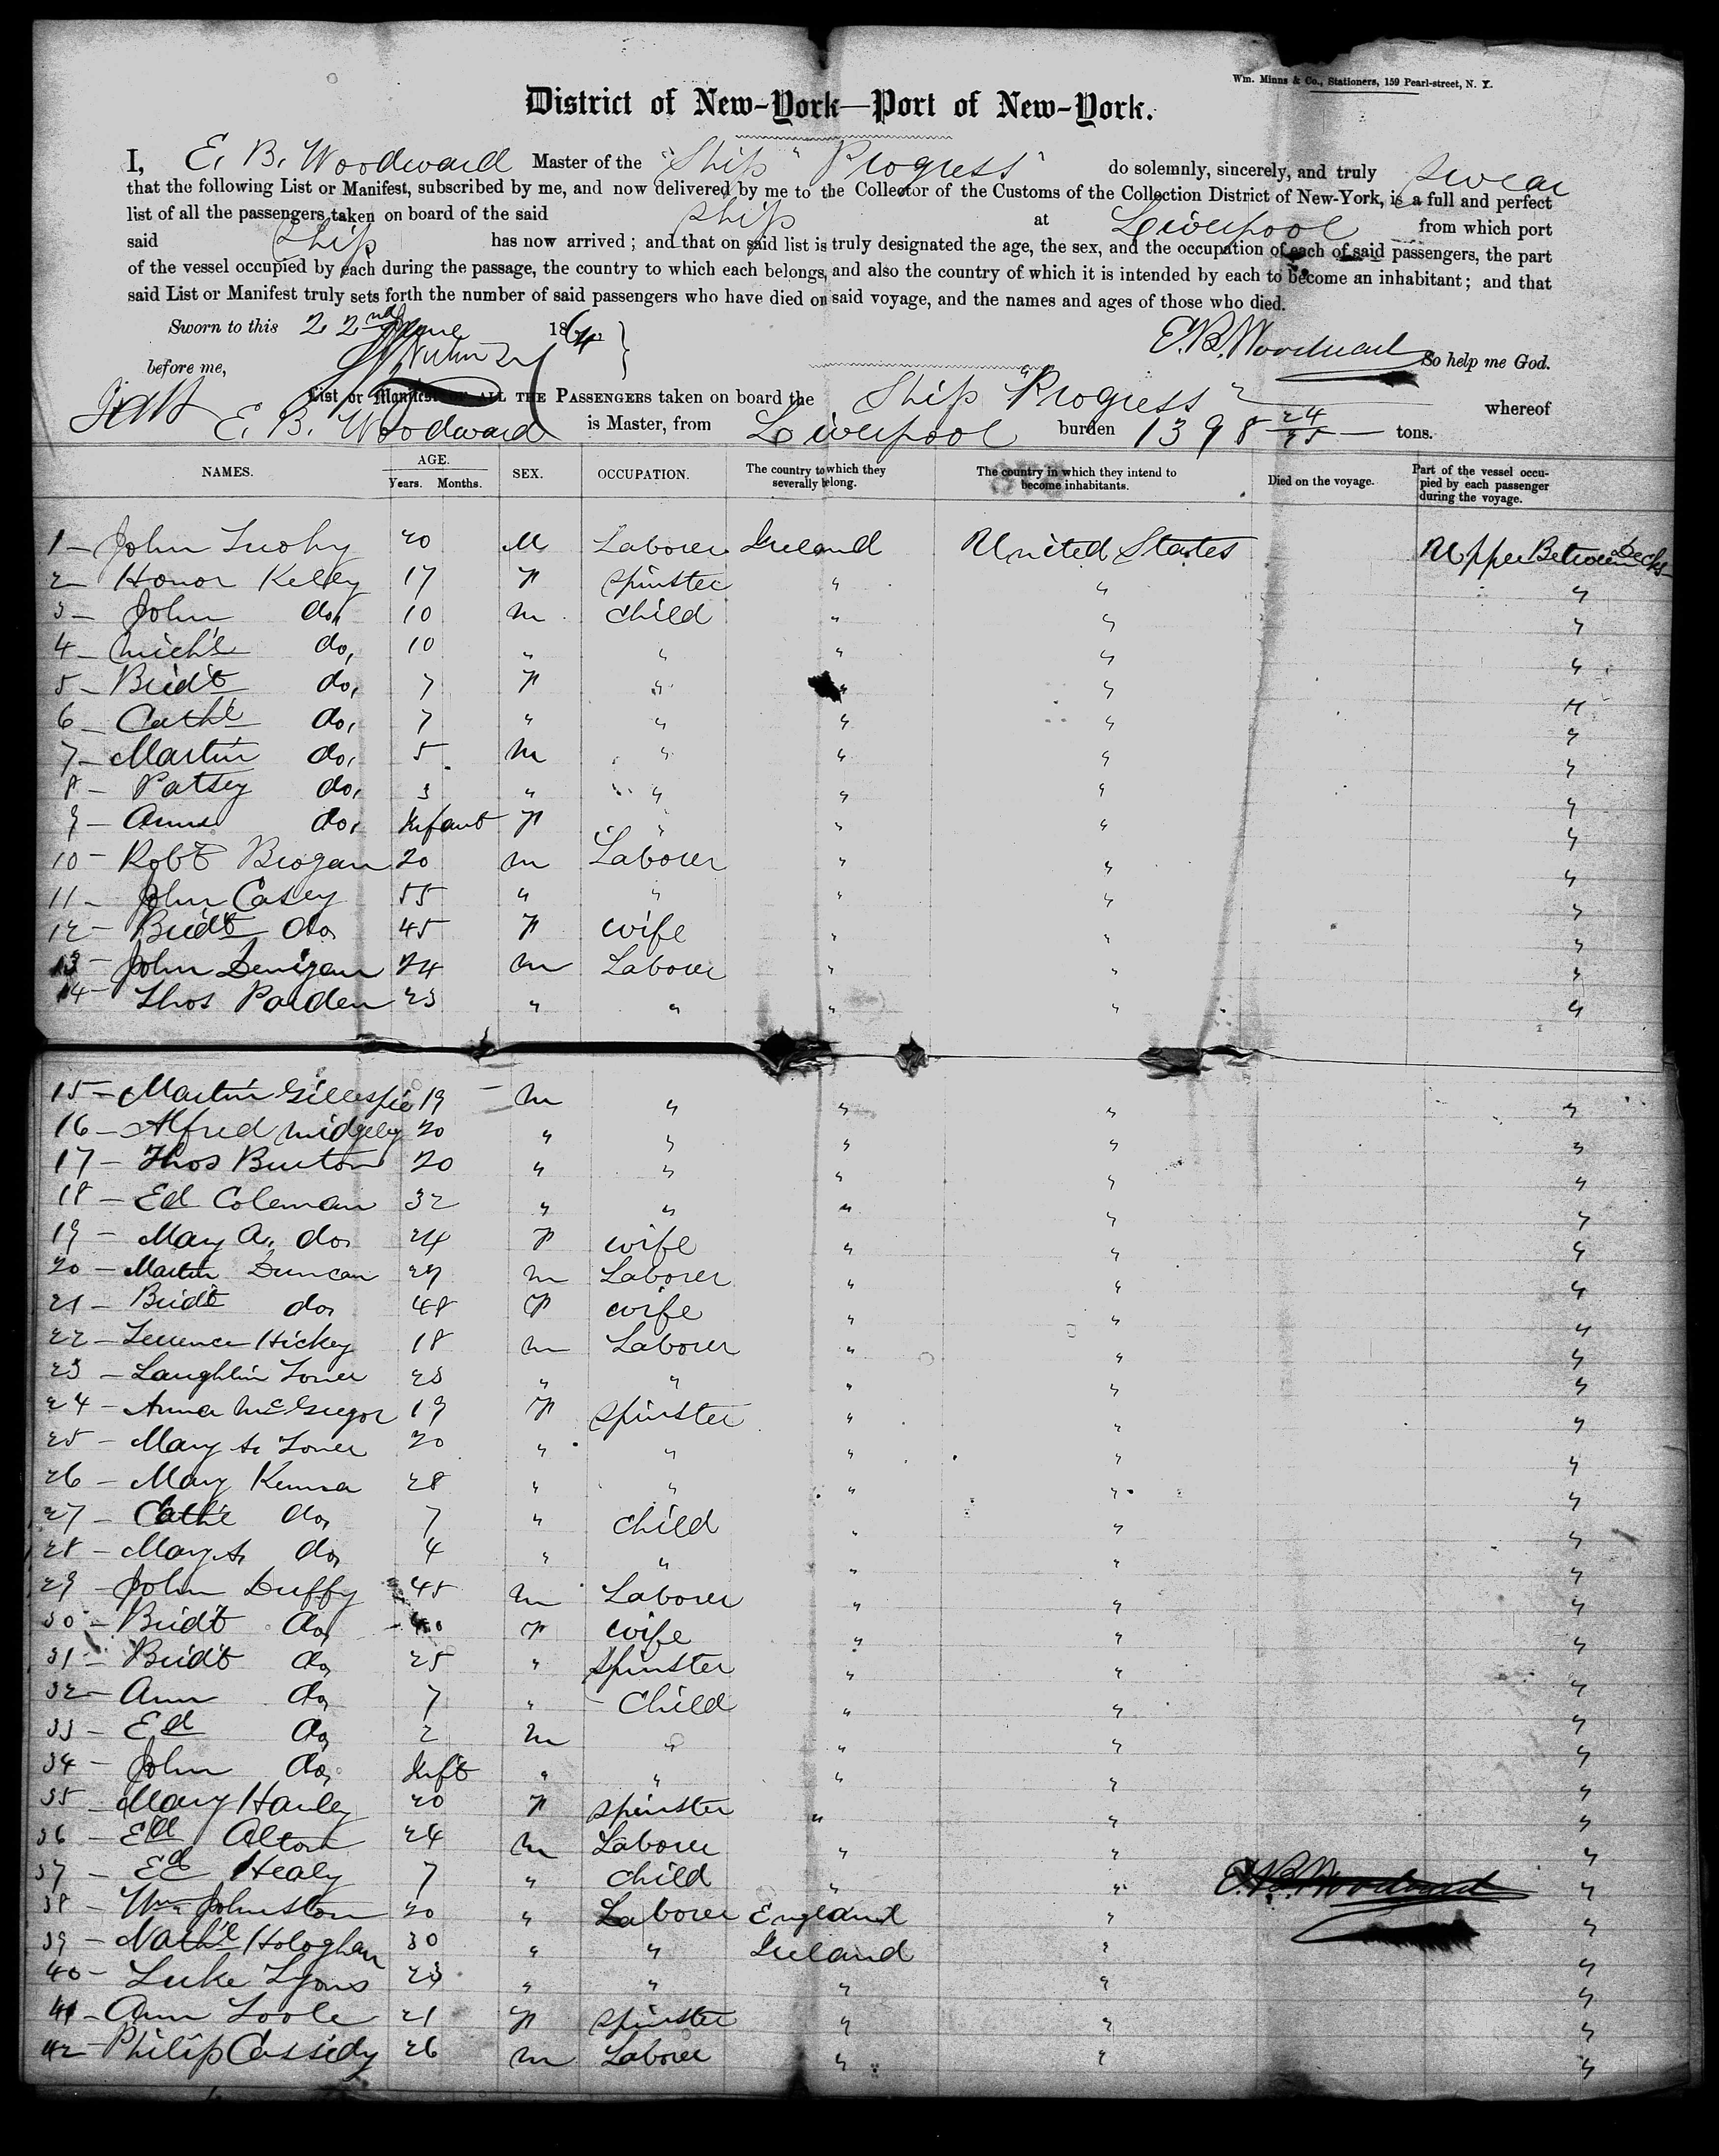 Wm. Minns & Co., Stationers, 159 Pearl-street, N. Y.
District of New-York—Port of New-York.
I, E. B. Woodward Master of the "Ship" Progress" do solemnly, sincerely, and truly swear
that the following List or Manifest, subscribed by me, and now delivered by me to the Collector of the Customs of the Collection District of New-York, is a full and perfect
list of all the passengers taken on board of the said ship at Liverpool from which port
said ship has now arrived; and that on said list is truly designated the age, the sex, and the occupation of each of said passengers, the part
of the vessel occupied by each during the passage, the country to which each belongs, and also the country of which it is intended by each to become an inhabitant; and that
said List or Manifest truly sets forth the number of said passengers who have died on said voyage, and the names and ages of those who died.
Sworn to this 22nd June 1864
E. B. Woodward So help me God.
before me,
List or Manifest OF ALL THE PASSENGERS taken on board the Ship "Progress" whereof
E. B. Woodward is Master, from Liverpool burden 1398 24/95 tons.
NAMES. AGE. Years. Months. SEX. OCCUPATION. The country to which they severally belong. The country in which they intend to become inhabitants. Died on the voyage. Part of the vessel occupied by each passenger during the voyage.
1 - John Tuohy 20 M Laborer Ireland United States Upper Between Decks
2 - Honor Kelley 17 F spinster " " "
3 - John do, 10 m child " " "
4 - Mich'l do, 10 " " " " "
5 - Bridt do, 7 F " " " "
6 - Cath'e do, 7 " " " " "
7 - Martin do, 5 m " " " "
8 - Patsey do, 3 " " " " "
9 - Anne do, Infant F " " " "
10 - Robt Brogan 20 m Laborer " " "
11 - John Casey 55 " " " " "
12 - Bridt do, 45 F wife " " "
13 - John Denigan 24 m Laborer " " "
14 - Thos Parden 23 " " " " "
15 - Martin Gillespie 19 m " " " "
16 - Alfred Midgely 20 " " " " "
17 - Thos Burton 20 " " " " "
18 - Ed Coleman 32 " " " " "
19 - Mary A. do, 24 F wife " " "
20 - Martin Duncan 29 m Laborer " " "
21 - Bridt do, 48 F wife " " "
22 - Terrence Hickey 18 m Laborer " " "
23 - Laughlin Toner 23 " " " " "
24 - Anna McGregor 19 F spinster " " "
25 - Mary A. Toner 20 " " " " "
26 - Mary Kenna 28 " " " " "
27 - Cath'e do, 7 " child " " "
28 - Mary A. do, 4 " " " " "
29 - John Duffy 45 m Laborer " " "
30 - Bridt do, 40 F wife " " "
31 - Bridt do, 25 " spinster " " "
32 - Ann do, 7 " child " " "
33 - Ed do, 2 m " " " "
34 - John do, Inft " " " " "
35 - Mary Hanley 20 F spinster " " "
36 - Ed Alton 24 m Laborer " " "
37 - Ed Healy 7 " child " " "
E. B. Woodward
38 - Wm Johnston 20 " Laborer England " "
39 - Nath'l Hologhan 30 " " Ireland " "
40 - Luke Lyons 23 " " " " "
41 - Ann Toole 21 F spinster " " "
42 - Philip Cassidy 26 m Laborer " " "